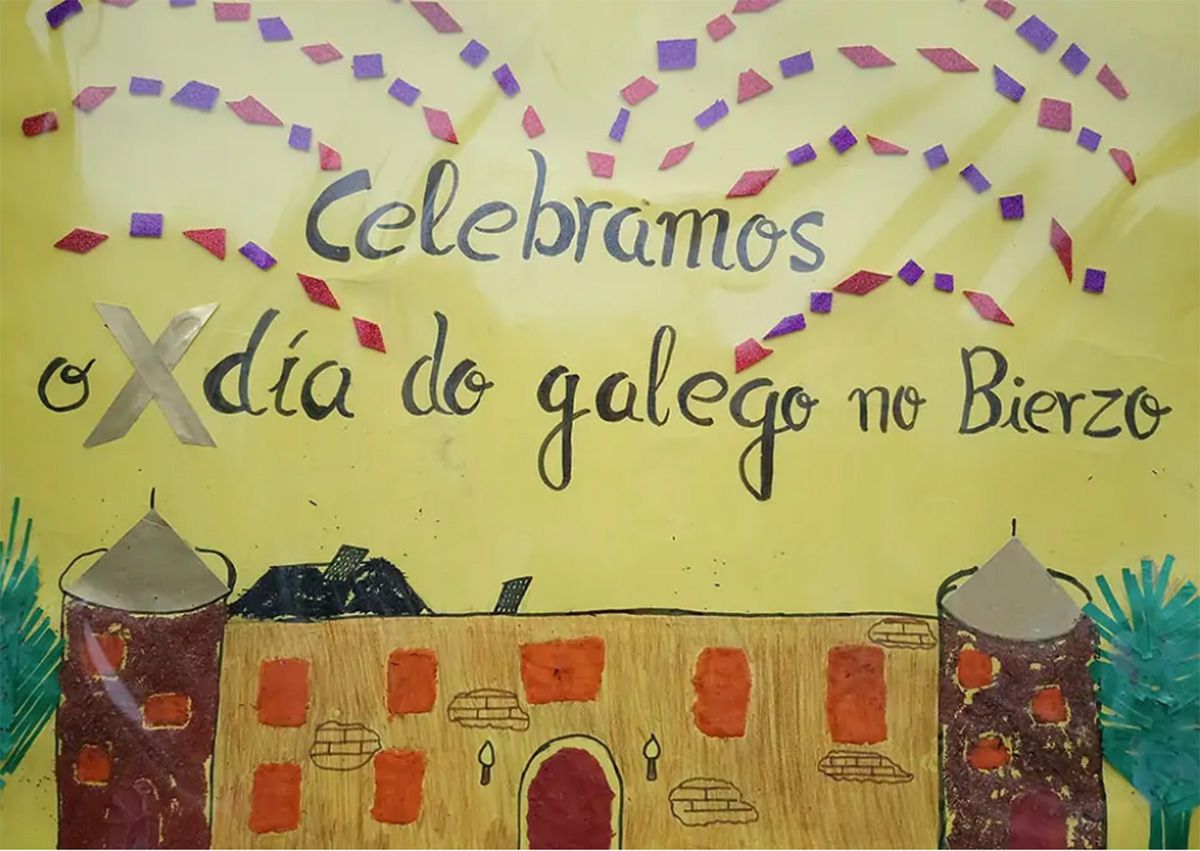 Celebramos
o X día do galego no Bierzo